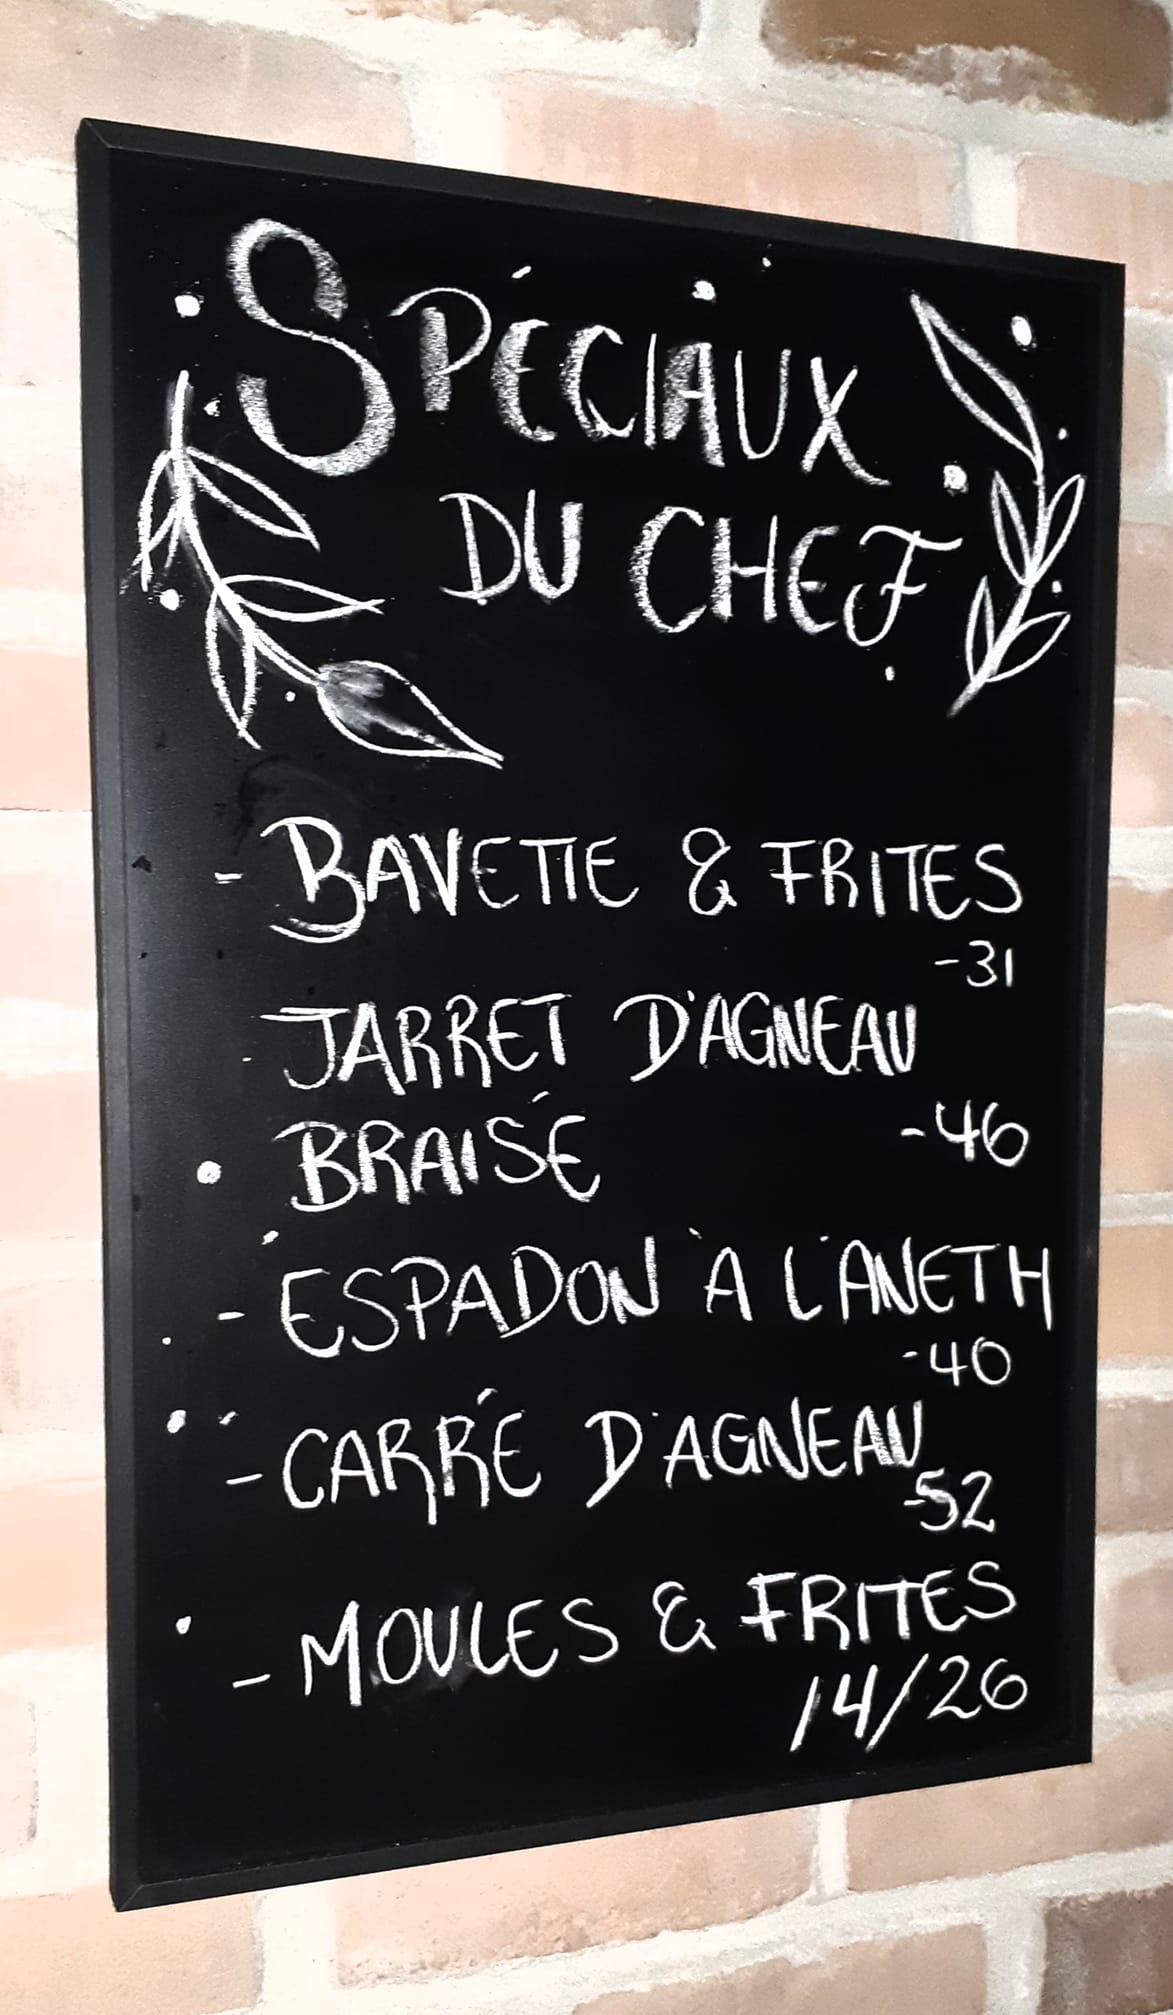 SPÉCIAUX
DU CHEF
- BAVETTE & FRITES
-31
- JARRET D'AGNEAU
BRAISÉ -46
- ESPADON À L'ANETH
-40
- CARRÉ D'AGNEAU
-52
- MOULES & FRITES
14/26